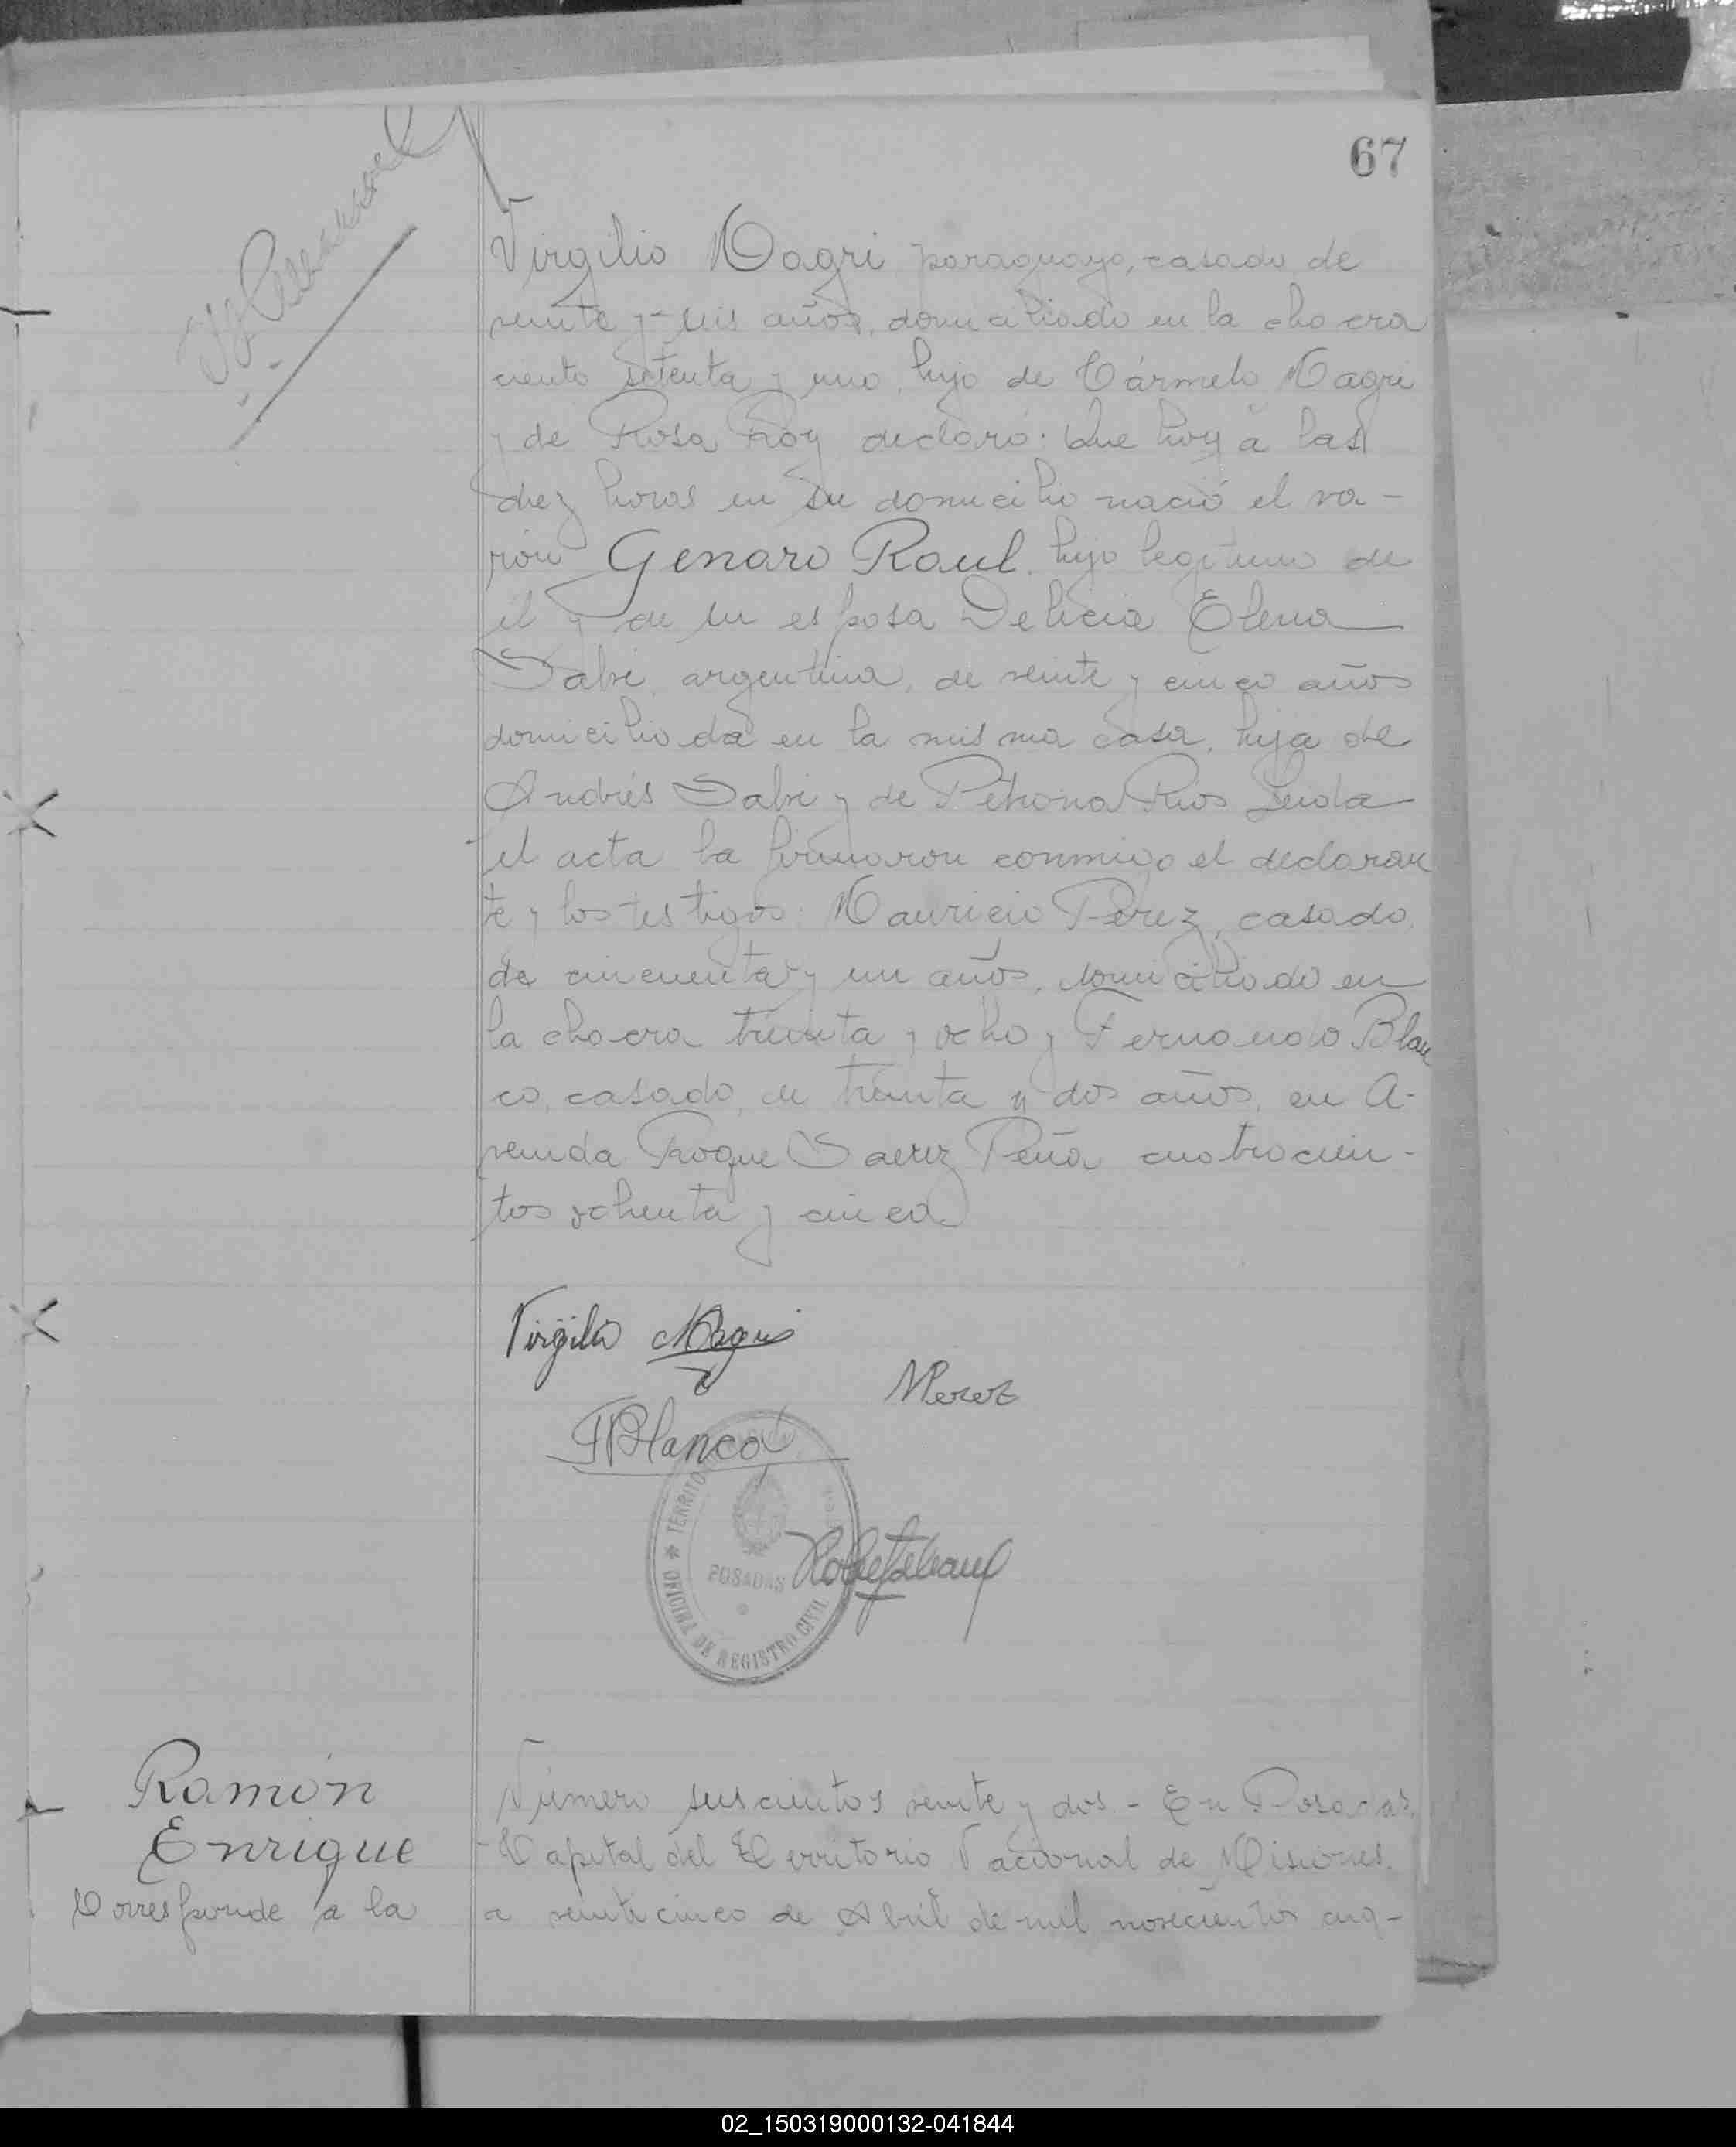 67
Virgilio Magri paraguayo, casado de
veinte y seis años, domiciliado en la chacra
ciento setenta y uno, hijo de Cármelo Magri
y de Rosa Roy declaró: Que hoy a las
diez horas en su domicilio nació el va-
rón Genaro Raul hijo legítimo de
él y de su esposa Delicia Elena
Dabi, argentina, de veinte y cinco años
domiciliada en la misma casa, hija de
Andrés Dabi y de Petrona Rios Leida
el acta la firmaron conmigo el declaran
te y los testigos: Mauricio Pérez, casado,
de cincuenta y un años, domiciliado en
la chacra treinta y ocho y Fernando Blan
co, casado, de treinta y dos años, en A-
venida Roque Saenz Peña cuatrocien-
tos ochenta y cinco
Virgilio Magri
MPerez
FBlanco
TERRITO
POSADAS
OFICINA DE REGISTRO CIVIL
Ramón
Enrique
Corresponde a la
Número seiscientos veinte y dos. - En Posadas,
Capital del Territorio Nacional de Misiones,
a veinticinco de Abril de mil novecientos cua-
02_150319000132-041844